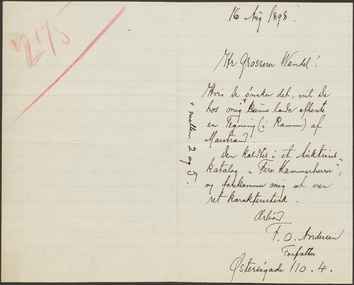 16 Aug 1898.
Hr Grosserer Wendel!
Hvis De ønsker det, vil De
hos mig kunne lade afhente
en Tegning (i Ramme) af
Marstrand.
Den kaldtes i et Auktions-
katalog „Fire Kammerherrer",
og forekommer mig at være
ret karakteristisk.
Ærbød.
F. O. Andersen
Forfatter
Østersøgade 110. 4.
mellem 2 og 5.